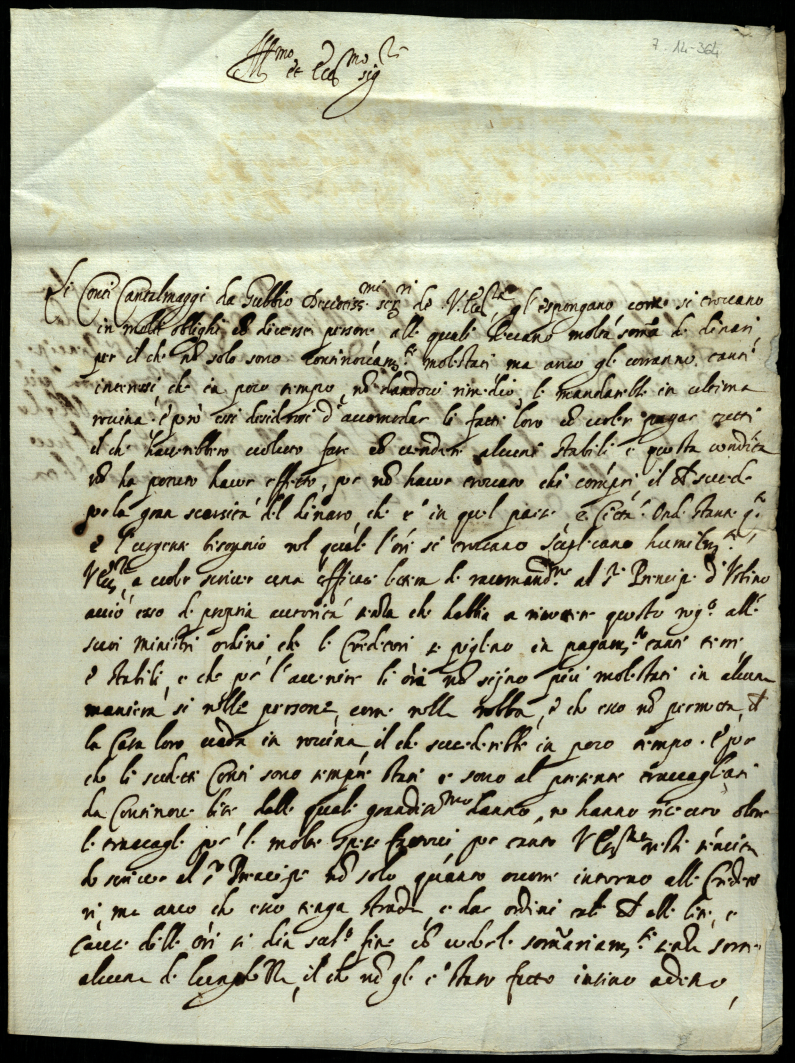 7-14-364
Ill.mo et Ecc.mo Sig.re
Li Conti Cantalmaggi da Gubbio devotiss.mi ser.ri de V. Ecc.tia gl'espongano come si trovano
in molti oblighi con diverse persone alli quali devano molta soma de dinari
per il che nõ solo sono continovam.te molestati ma anco gli corranno tanti
interessi che in poco tempo, nõ dandovi rimedio, li mandarebbe in ultima
rovina, e però essi desiderosi d'accomodar li fatti loro et voler pagar tutti
il che haverebbero voluto fare con vendere alcuni stabili e questa vendita
nõ ha potuto haver effetto, per nõ haver trovato chi compri, il ch̃ succede
per la gran scarsità del dinaro, che è in quel paese e Città. Onde stante q.to
e l'urgente bisognio nel quale l'ori si trovano suplicano humilm.te
V. Ecc.tia a voler scriver una efficace littera di racomand.ne al S.r Principe d'Urbino
acciò esso di propria autorità senza che habbia a rimettere questo neg.o alli
suoi ministri ordini che li Creditori se piglino in pagam.to tanti terreni
e stabili, e che per l'avvenire li ori nõ siano più molestati in alcuna
maniera, si nelle persone, come nella robba, e che esso nõ permetta, ch̃
la Casa loro vada in rovina, il che succederebbe in poco tempo. E per
che li sudetti Conti sono sempre stati e sono al presente travagliati
da continove lite dalle quali grandiss.mo danno, ne hanno ricevuto oltre
li travagli per le molte spese fattevi per tanto V. Ecc.tia resti servita
de scrivere al S.r Principe nõ solo quanto occorre intorno alli Credito
ri, ma anco che esso tenga strada, e dar ordini tali ch̃ alle lite, e
cause delli ori se dia sub.o fine con vederle somariam.te senza sorte
alcuna de lunghezza, il che nõ gli è stato fatto insino adesso,